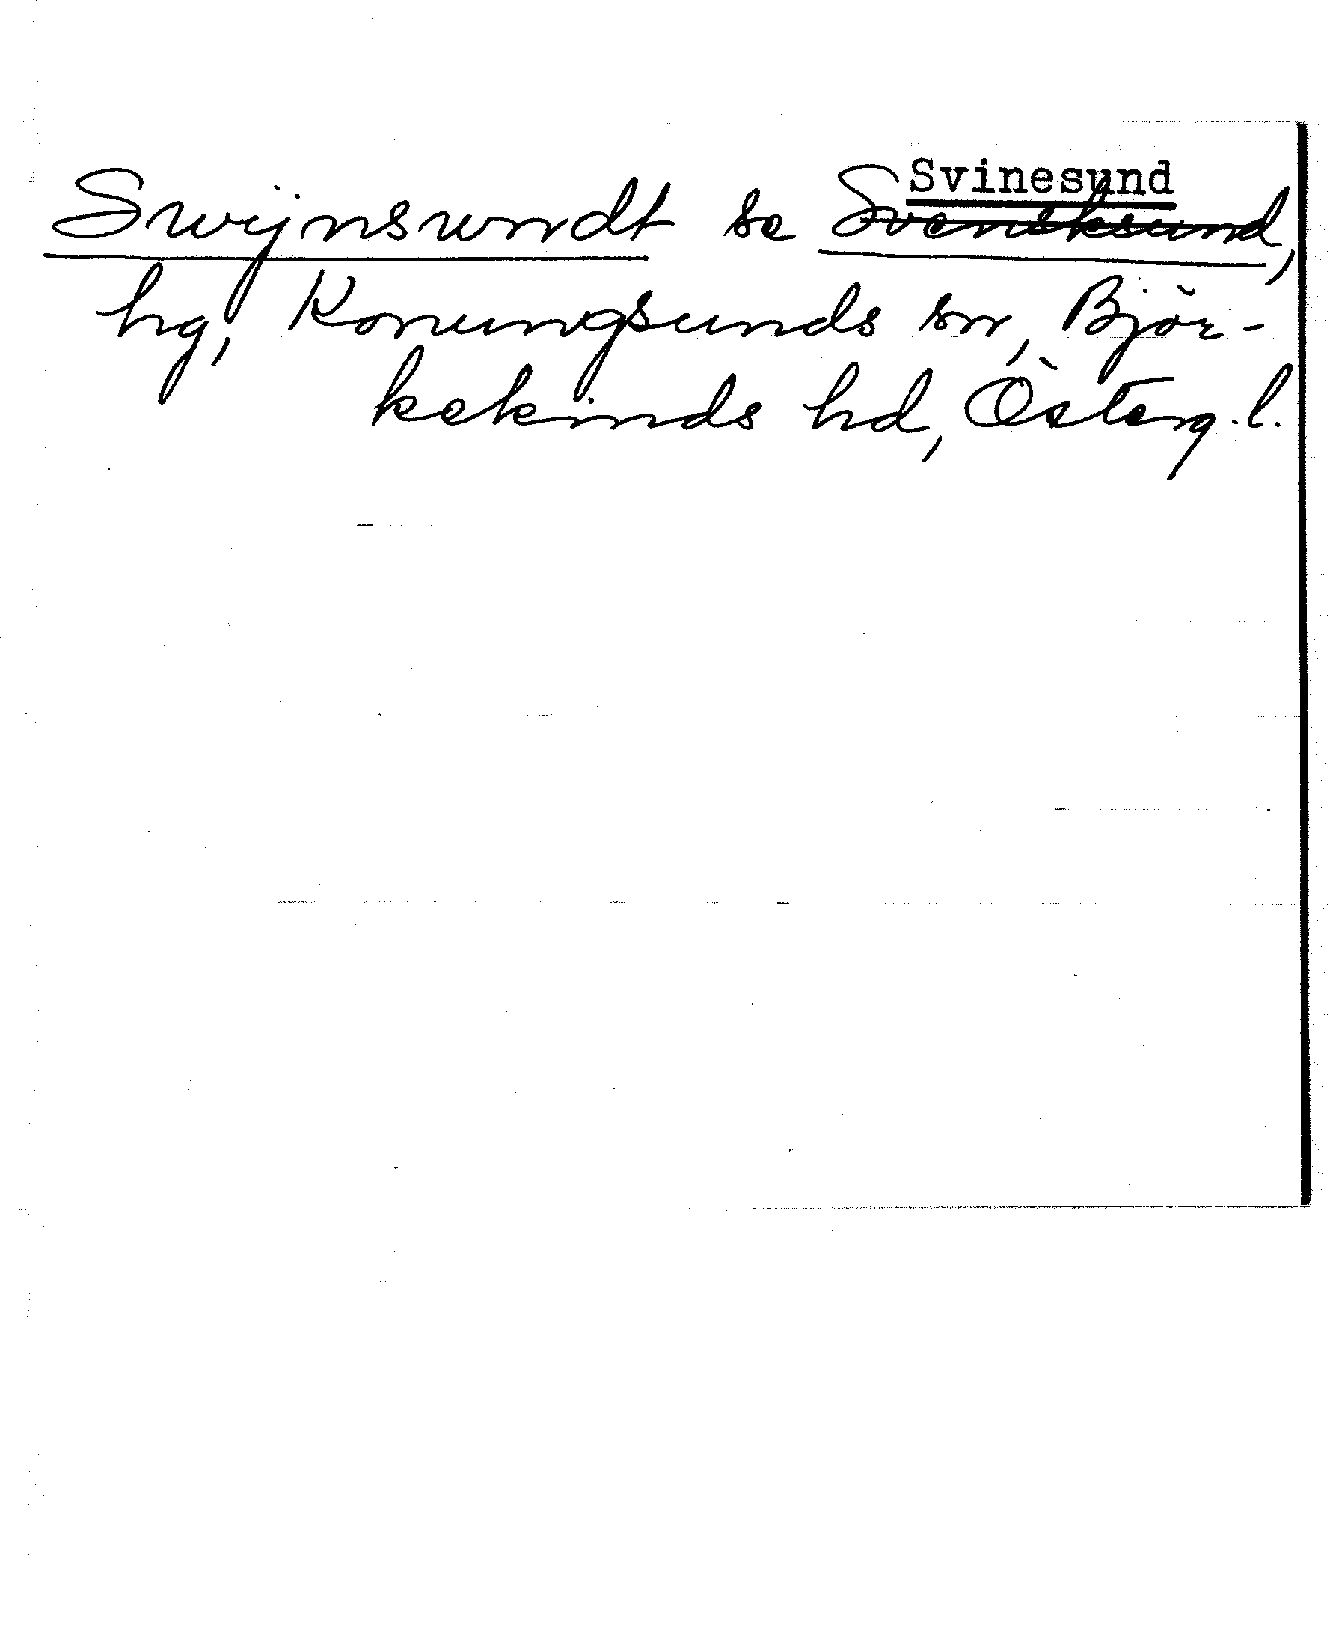 Svinesund
Swijnsundt se Svensksund,
hg, Konungsunds sn, Björ-
kekinds hd, Österg.l.